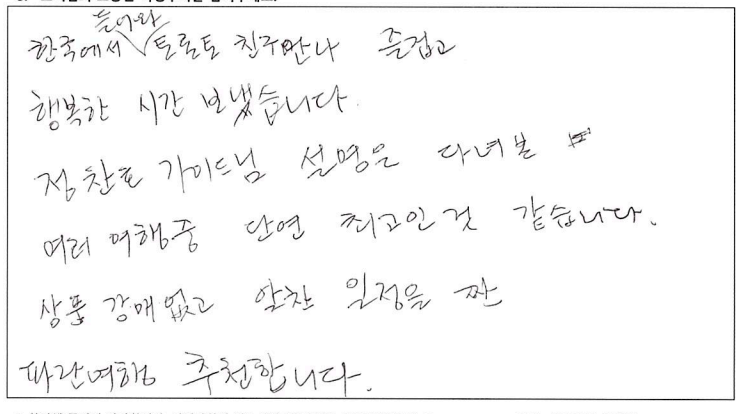 한국에서 들어와 토론토 친구만나 즐겁고
행복한 시간 보냈습니다.
정찬호 가이드님 설명은 다녀본
여러 여행중 단연 최고인것 같습니다.
상품 강매없고 알찬 일정을 짠
파란여행 추천합니다.